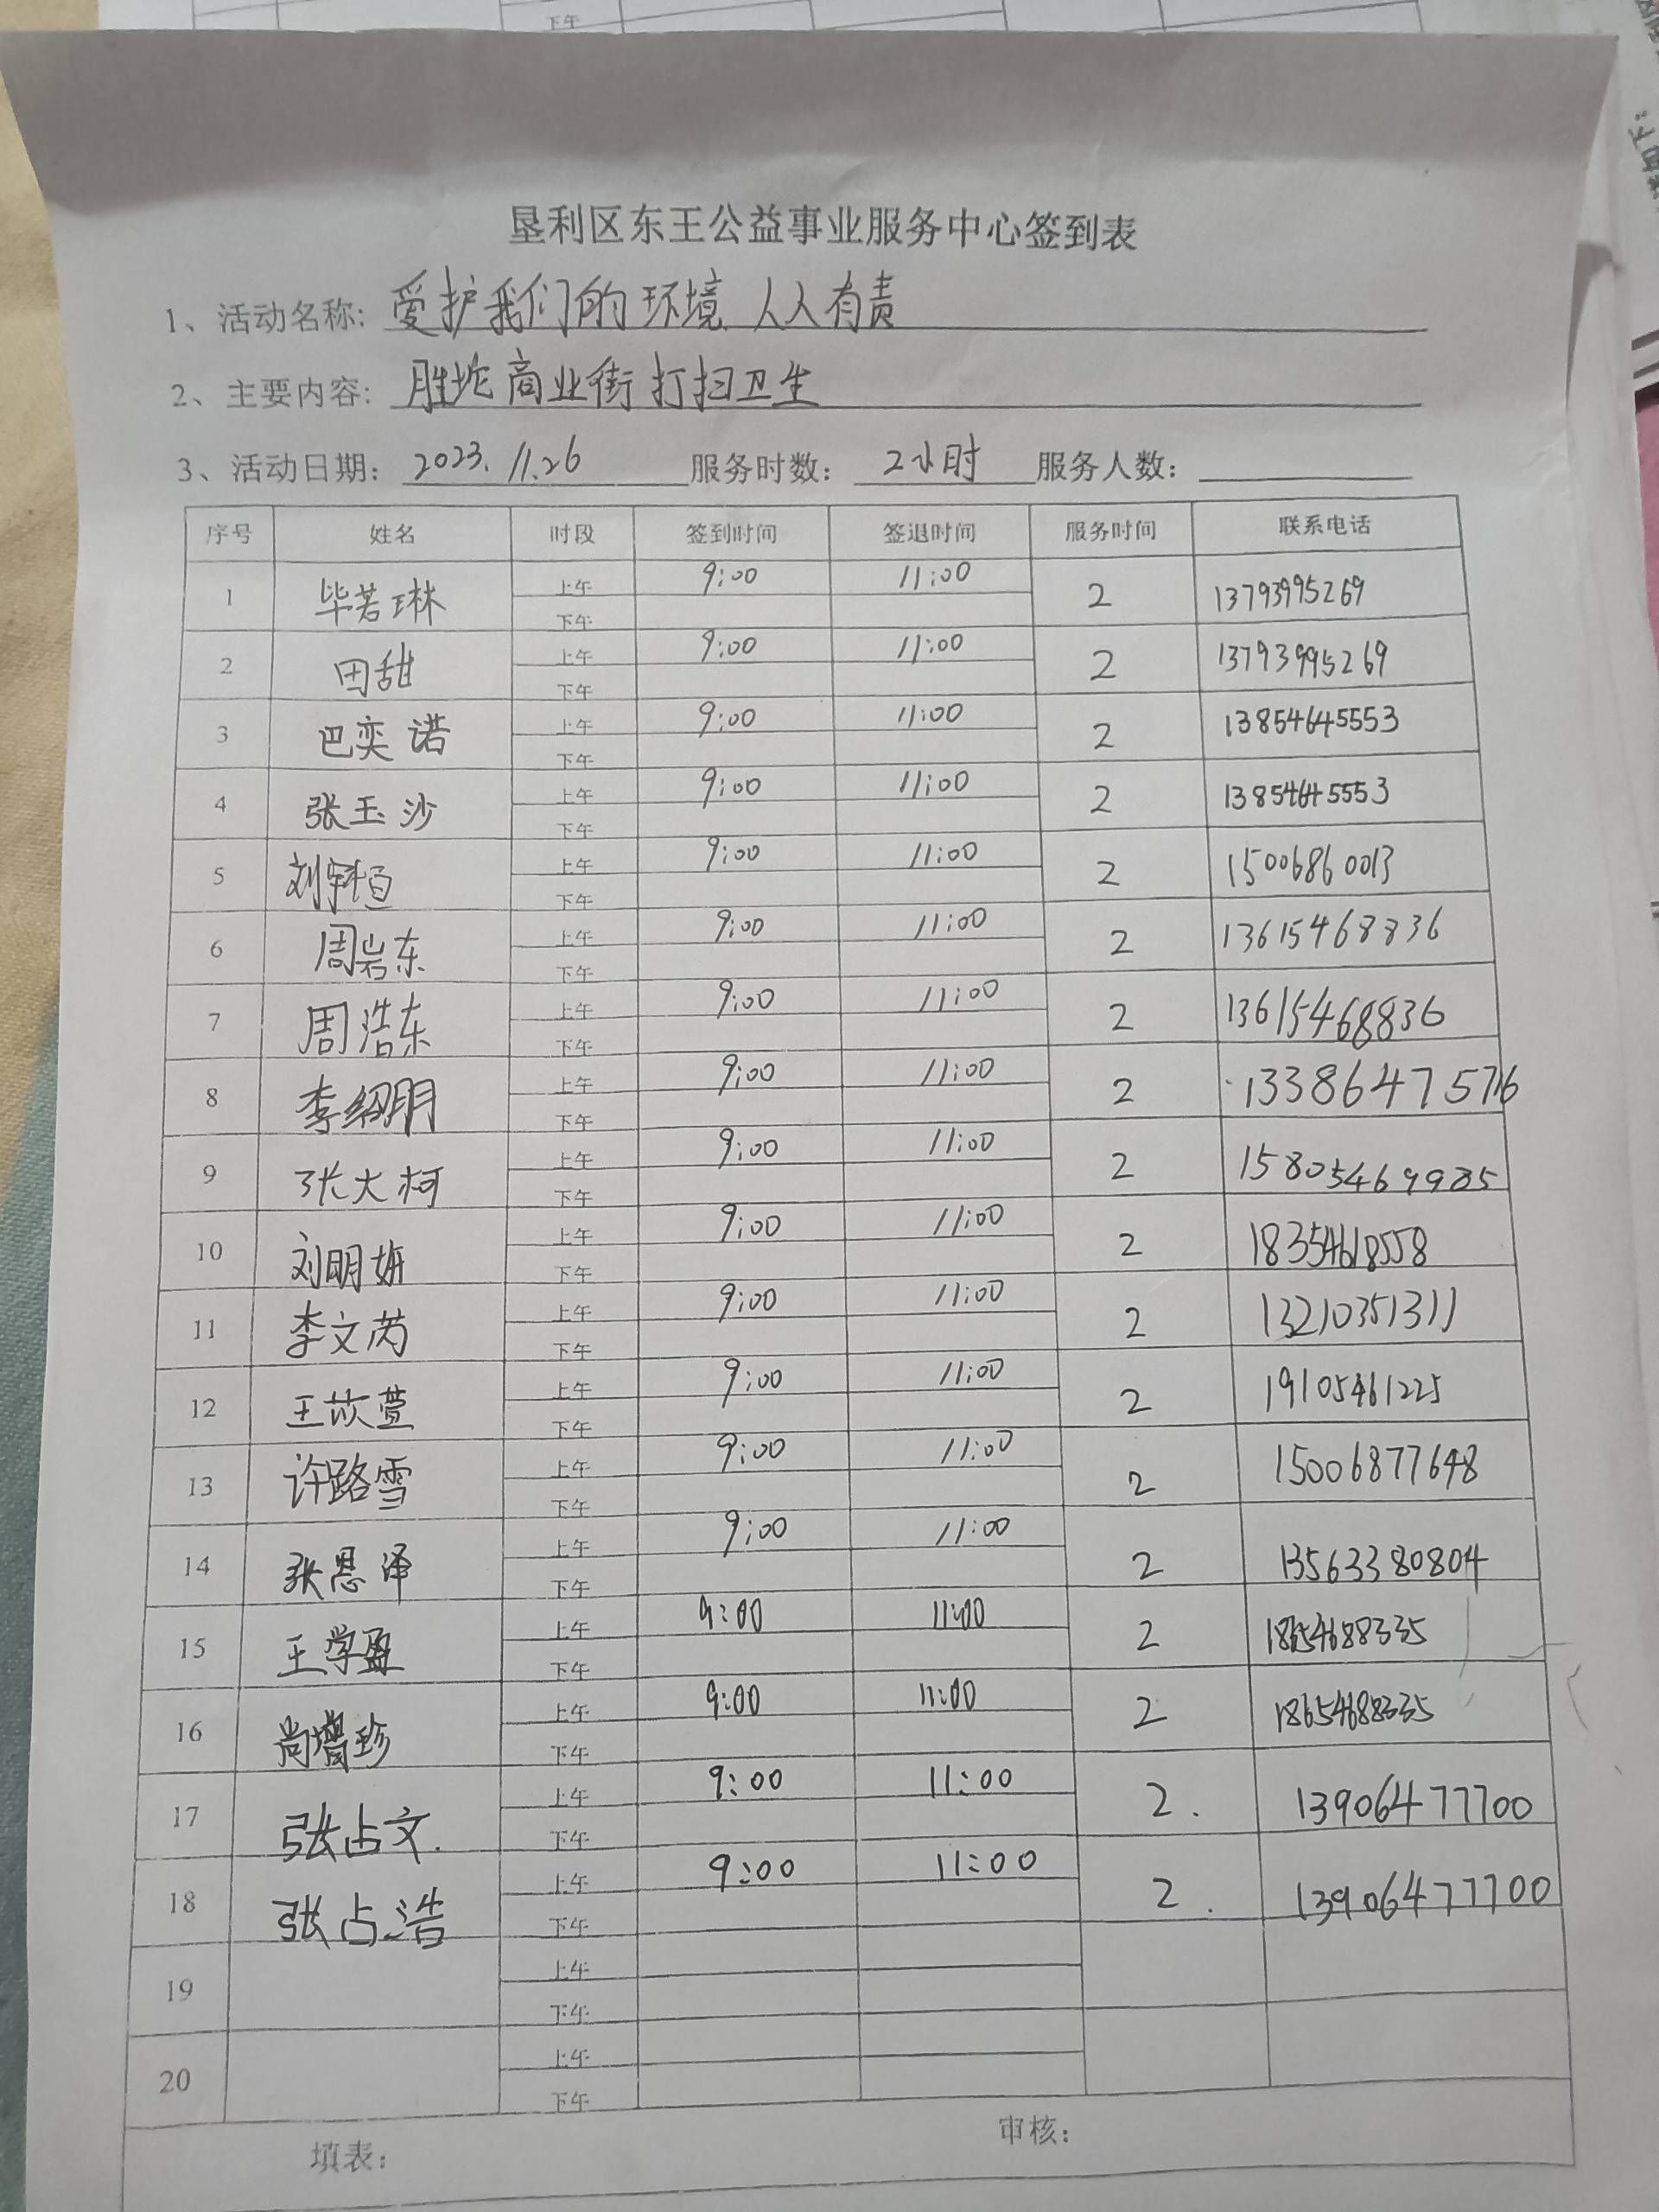 下午
垦利区东王公益事业服务中心签到表
1、活动名称: 爱护我们的环境 人人有责
2、主要内容: 胜坨商业街打扫卫生
3、活动日期: 2023.11.26 服务时数: 2小时 服务人数:
序号 姓名 时段 签到时间 签退时间 服务时间 联系电话
1 毕若琳 上午 9:00 11:00 2 13793995269
下午
2 田甜 上午 9:00 11:00 2 13793995269
下午
3 巴奕诺 上午 9:00 11:00 2 13854645553
下午
4 张玉沙 上午 9:00 11:00 2 13854645553
下午
5 上午 9:00 11:00 2 15006860013
下午
6 周岩东 上午 9:00 11:00 2 13615468836
下午
7 周浩东 上午 9:00 11:00 2 13615468836
下午
8 李绍明 上午 9:00 11:00 2 13386475716
下午
9 张大柯 上午 9:00 11:00 2 15805469985
下午
10 刘明妍 上午 9:00 11:00 2 18354618558
下午
11 李文芮 上午 9:00 11:00 2 13210351311
下午
12 王苡萱 上午 9:00 11:00 2 19105461225
下午
13 许路雪 上午 9:00 11:00 2 15006877648
下午
14 张恩泽 上午 9:00 11:00 2 13563380804
下午
15 王学盈 上午 9:00 11:00 2 18654688335
下午
16 尚增珍 上午 9:00 11:00 2 18654688335
下午
17 张占文. 上午 9:00 11:00 2. 13906477700
下午
18 张占浩 上午 9:00 11:00 2. 13906477700
下午
19 上午
下午
20 上午
下午
填表: 审核: